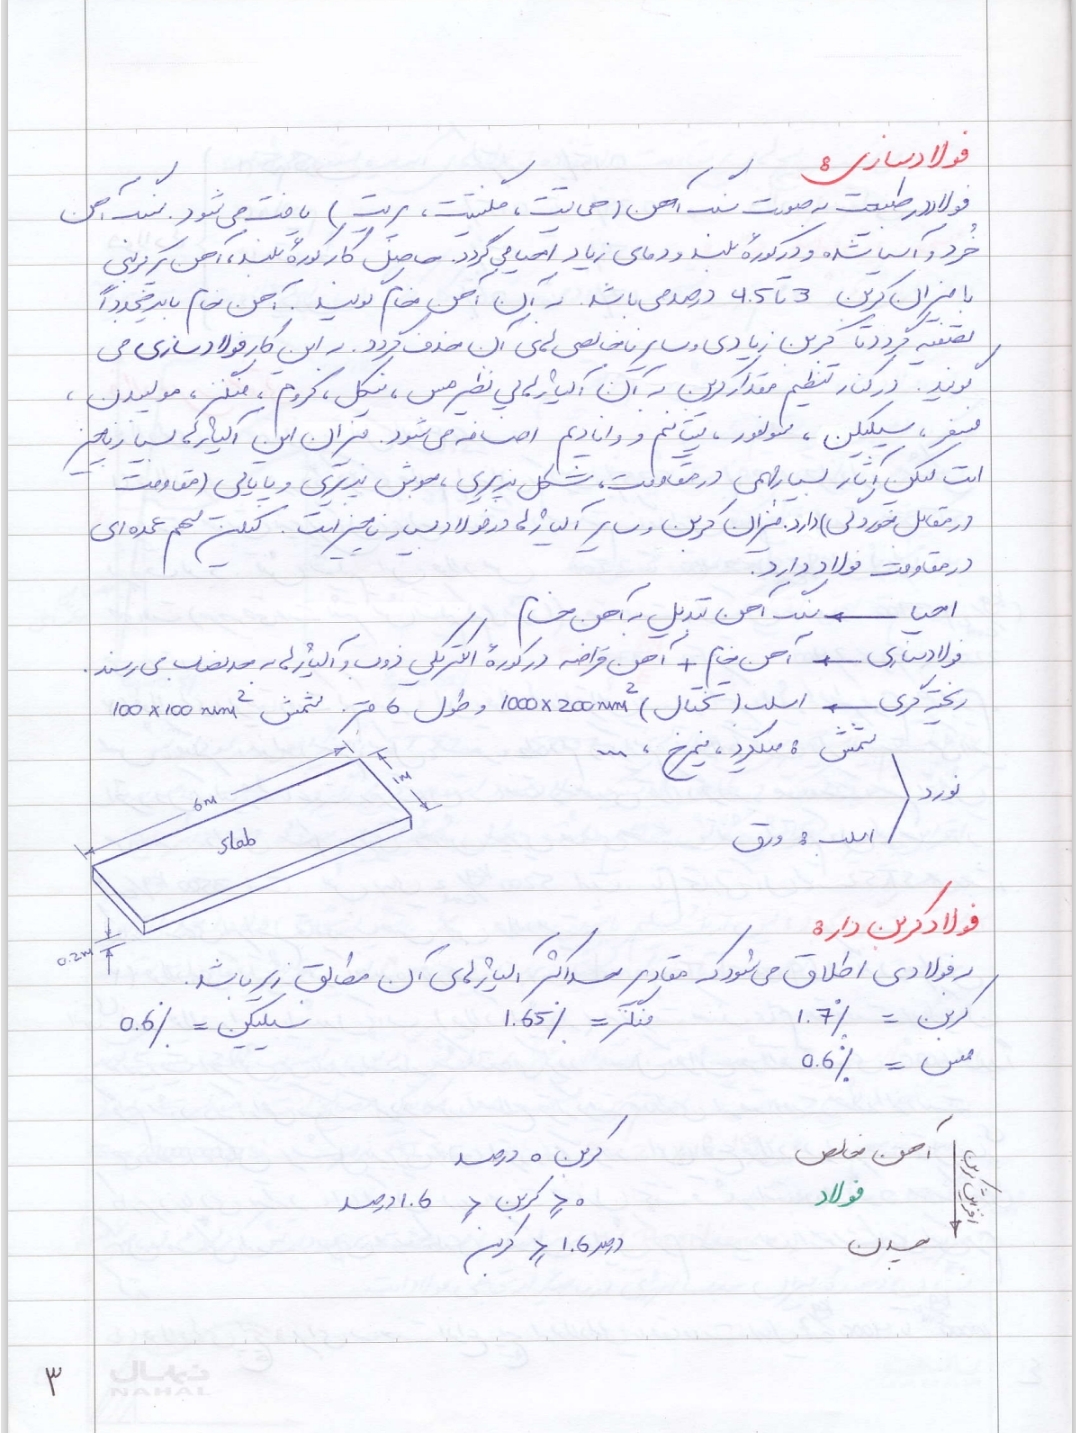 فولادسازی :
فولاد در طبیعت به صورت سنگ آهن (هماتیت، مگنتیت، پریت) یافت می شود. سنگ آهن
خُرد و آسیا شده و در کورهٔ بلند و دمای زیاد احیا می گردد. حاصل کار کورهٔ بلند، آهن پر کربنی
با میزان کربن 3 تا 4.5 درصد می باشد. به آن آهن خام گویند. آهن خام باید مجدداً
تصفیه گردد تا کربن زیادی و سایر ناخالصی های آن حذف گردد. به این کار فولادسازی می
گویند. در کنار تنظیم مقدار کربن به آن آلیاژهایی نظیر مس، نیکل، کروم، منگنز، مولیبدن،
فسفر، سیلیکن، سولفور، تیتانیم و وانادیم اضافه می شود. میزان این آلیاژها بسیار ناچیز
است لیکن آثار بسیار مهمی در مقاومت، شکل پذیری، جوش پذیری و پایایی (مقاومت
در مقابل خوردگی) دارد. میزان کربن و سایر آلیاژها در فولاد بسیار ناچیز است. لیکن سهم عمده ای
در مقاومت فولاد دارد.
احیا ← سنگ آهن تبدیل به آهن خام
فولادسازی ← آهن خام + آهن قراضه در کورهٔ الکتریکی ذوب و آلیاژها به حد نصاب می رسند.
ریخته گری ← اسلب (تختال) 1000 x 200 mm² و طول 6 متر. شمش 100 x 100 mm²
شمش : میلگرد، نیمرخ، ...
نورد
اسلب : ورق
6m
1m
slab
0.2m
فولاد کربن دار :
به فولادی اطلاق می شود که مقادیر حداکثر آلیاژهای آن مطابق زیر باشد.
کربن = 1.7% منگنز = 1.65% سیلیکن = 0.6%
مس = 0.6%
آهن خالص کربن 0 درصد
فولاد 0 ≤ کربن ≤ 1.6 درصد
چدن 1.6 درصد ≤ کربن
افزایش کربن
۳
نهال
NAHAL